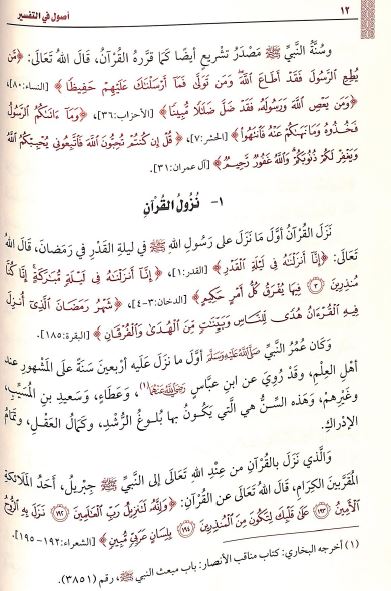 ١٢ أصول في التفسير
وسُنَّةُ النَّبِيِّ ﷺ مَصْدَرُ تَشْرِيعٍ أيضًا كمَا قرَّرهُ القُرْآنُ، قَالَ اللهُ تَعَالَى: ﴿مَّن
يُطِعِ ٱلرَّسُولَ فَقَدۡ أَطَاعَ ٱللَّهَۖ وَمَن تَوَلَّىٰ فَمَآ أَرۡسَلۡنَٰكَ عَلَيۡهِمۡ حَفِيظٗا﴾ [النساء:٨٠]،
﴿وَمَن يَعۡصِ ٱللَّهَ وَرَسُولَهُۥ فَقَدۡ ضَلَّ ضَلَٰلٗا مُّبِينٗا﴾ [الأحزاب:٣٦]، ﴿وَمَآ ءَاتَىٰكُمُ ٱلرَّسُولُ
فَخُذُوهُ وَمَا نَهَىٰكُمۡ عَنۡهُ فَٱنتَهُواْ﴾ [الحشر:٧]، ﴿قُلۡ إِن كُنتُمۡ تُحِبُّونَ ٱللَّهَ فَٱتَّبِعُونِي يُحۡبِبۡكُمُ ٱللَّهُ
وَيَغۡفِرۡ لَكُمۡ ذُنُوبَكُمۡۚ وَٱللَّهُ غَفُورٞ رَّحِيمٞ﴾ [آل عمران:٣١].
١- نُزُولُ القُرْآنِ
نَزَلَ القُرْآنُ أوَّلَ مَا نَزَلَ على رَسُولِ اللهِ ﷺ في ليلةِ القَدْرِ في رمَضانَ، قَالَ اللهُ
تَعَالَى: ﴿إِنَّآ أَنزَلۡنَٰهُ فِي لَيۡلَةِ ٱلۡقَدۡرِ﴾ [القدر:١]، ﴿إِنَّآ أَنزَلۡنَٰهُ فِي لَيۡلَةٖ مُّبَٰرَكَةٍۚ إِنَّا كُنَّا
مُنذِرِينَ ٣ فِيهَا يُفۡرَقُ كُلُّ أَمۡرٍ حَكِيمٍ﴾ [الدخان:٣-٤]، ﴿شَهۡرُ رَمَضَانَ ٱلَّذِيٓ أُنزِلَ
فِيهِ ٱلۡقُرۡءَانُ هُدٗى لِّلنَّاسِ وَبَيِّنَٰتٖ مِّنَ ٱلۡهُدَىٰ وَٱلۡفُرۡقَانِ﴾ [البقرة:١٨٥].
وَكَان عُمُرُ النَّبِيِّ صَلَّى اللهُ عَلَيْهِ وَسَلَّمَ أوَّلَ ما نَزَلَ عَلَيه أربعينَ سَنَةً علَى المَشْهورِ عند
أهْلِ العِلْمِ، وقَدْ رُوِيَ عن ابنِ عبَّاسٍ رَضِيَ اللهُ عَنْهُمَا(١)، وعَطَاءٍ، وسَعِيدِ بنِ المُسَيِّبِ،
وغَيْرِهِمْ، وهَذه السِّنُّ هي الَّتي يَكُونُ بها بُلُوغُ الرُّشْدِ، وكمَالُ العَقْلِ، وتَمَامُ
الإدراكِ.
والَّذي نَزَلَ بالقُرْآنِ من عِنْدِ اللهِ تَعَالَى إلى النَّبِيِّ ﷺ جِبْريلُ، أَحَدُ المَلَائكةِ
المُقَرَّبينَ الكِرَامِ، قَالَ اللهُ تَعَالَى عن القُرْآنِ: ﴿وَإِنَّهُۥ لَتَنزِيلُ رَبِّ ٱلۡعَٰلَمِينَ ١٩٢ نَزَلَ بِهِ ٱلرُّوحُ
ٱلۡأَمِينُ ١٩٣ عَلَىٰ قَلۡبِكَ لِتَكُونَ مِنَ ٱلۡمُنذِرِينَ ١٩٤ بِلِسَانٍ عَرَبِيّٖ مُّبِينٖ﴾ [الشعراء:١٩٢-١٩٥].
(١) أخرجه البخاري: كتاب مناقب الأنصار: باب مبعث النبي ﷺ، رقم (٣٨٥١).